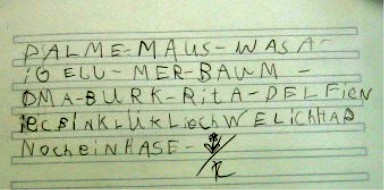 PALME-MAUS-WASA-
iGELU-MER-BAUM-
OMA-BURK-RitA-DELFiEN
iECBINKLÜKLiochWELICHHAB
NOcheiNHASE-